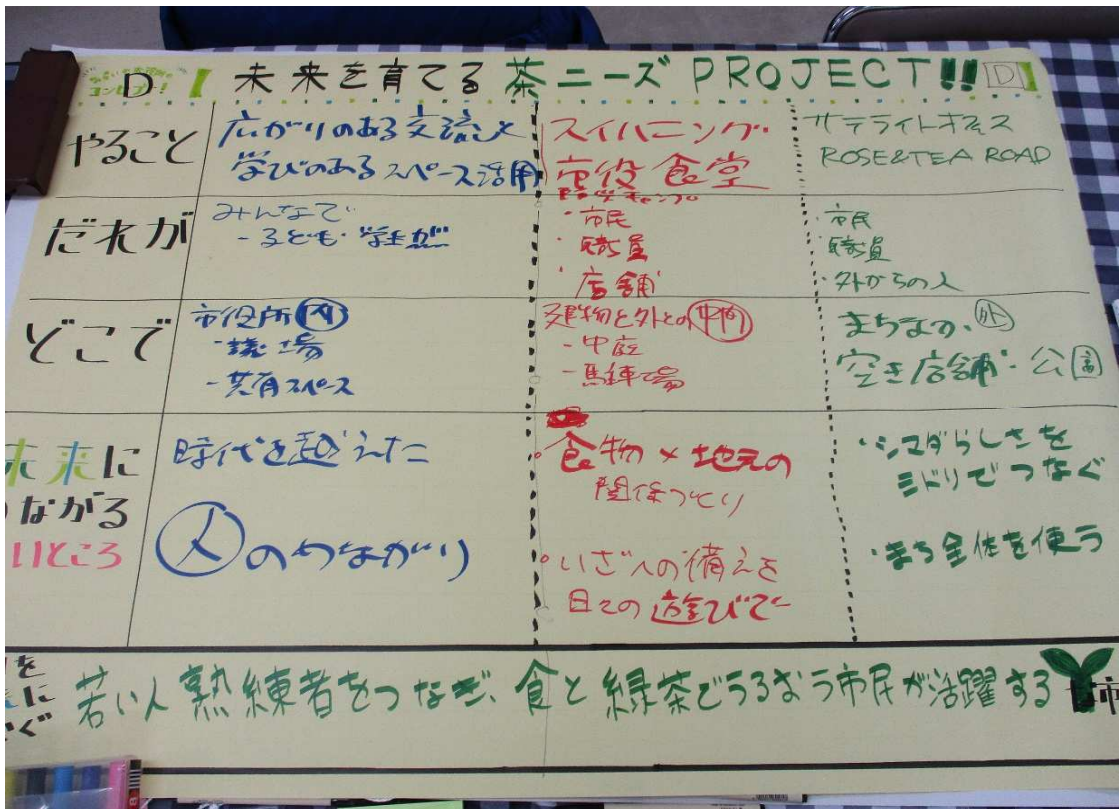 D 【 未来を育てる茶ニーズ PROJECT!! D 】
コンセプト!
やること
広がりのある交流と
学びのあるスペース活用
スイハニング
市役食堂
防災キャンプ。
サテライトオフィス
ROSE&TEA ROAD
だれが
みんなで
- 子ども・学生が
・市民
・職員
・店舗
・市民
職員
・外からの人
どこで
市役所 内
・議場
- 共有スペース
建物と外との中間
- 中庭
- 馬練場
まちなか・外
空き店舗・公園
未来に
ながる
いところ
時代を越えた
人のつながり
・食物×地元の
関係づくり
・いざへの備えを
日々の遊びで
・シマダらしさを
ミドリでつなぐ
・まち全体を使う
を
に
ぐ
若い人 熟練者をつなぎ、食と緑茶でうるおう市民が活躍する
市